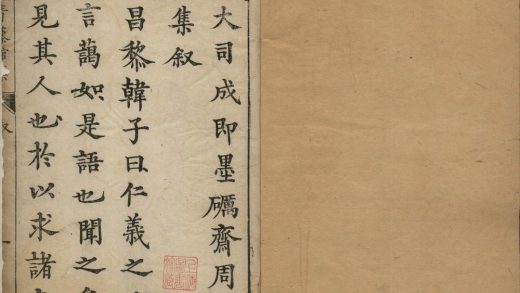 大司成即墨礪齋周
集叙
昌黎韓子曰仁義之
言藹如是語也聞之
見其人也於以求諸
叙
一